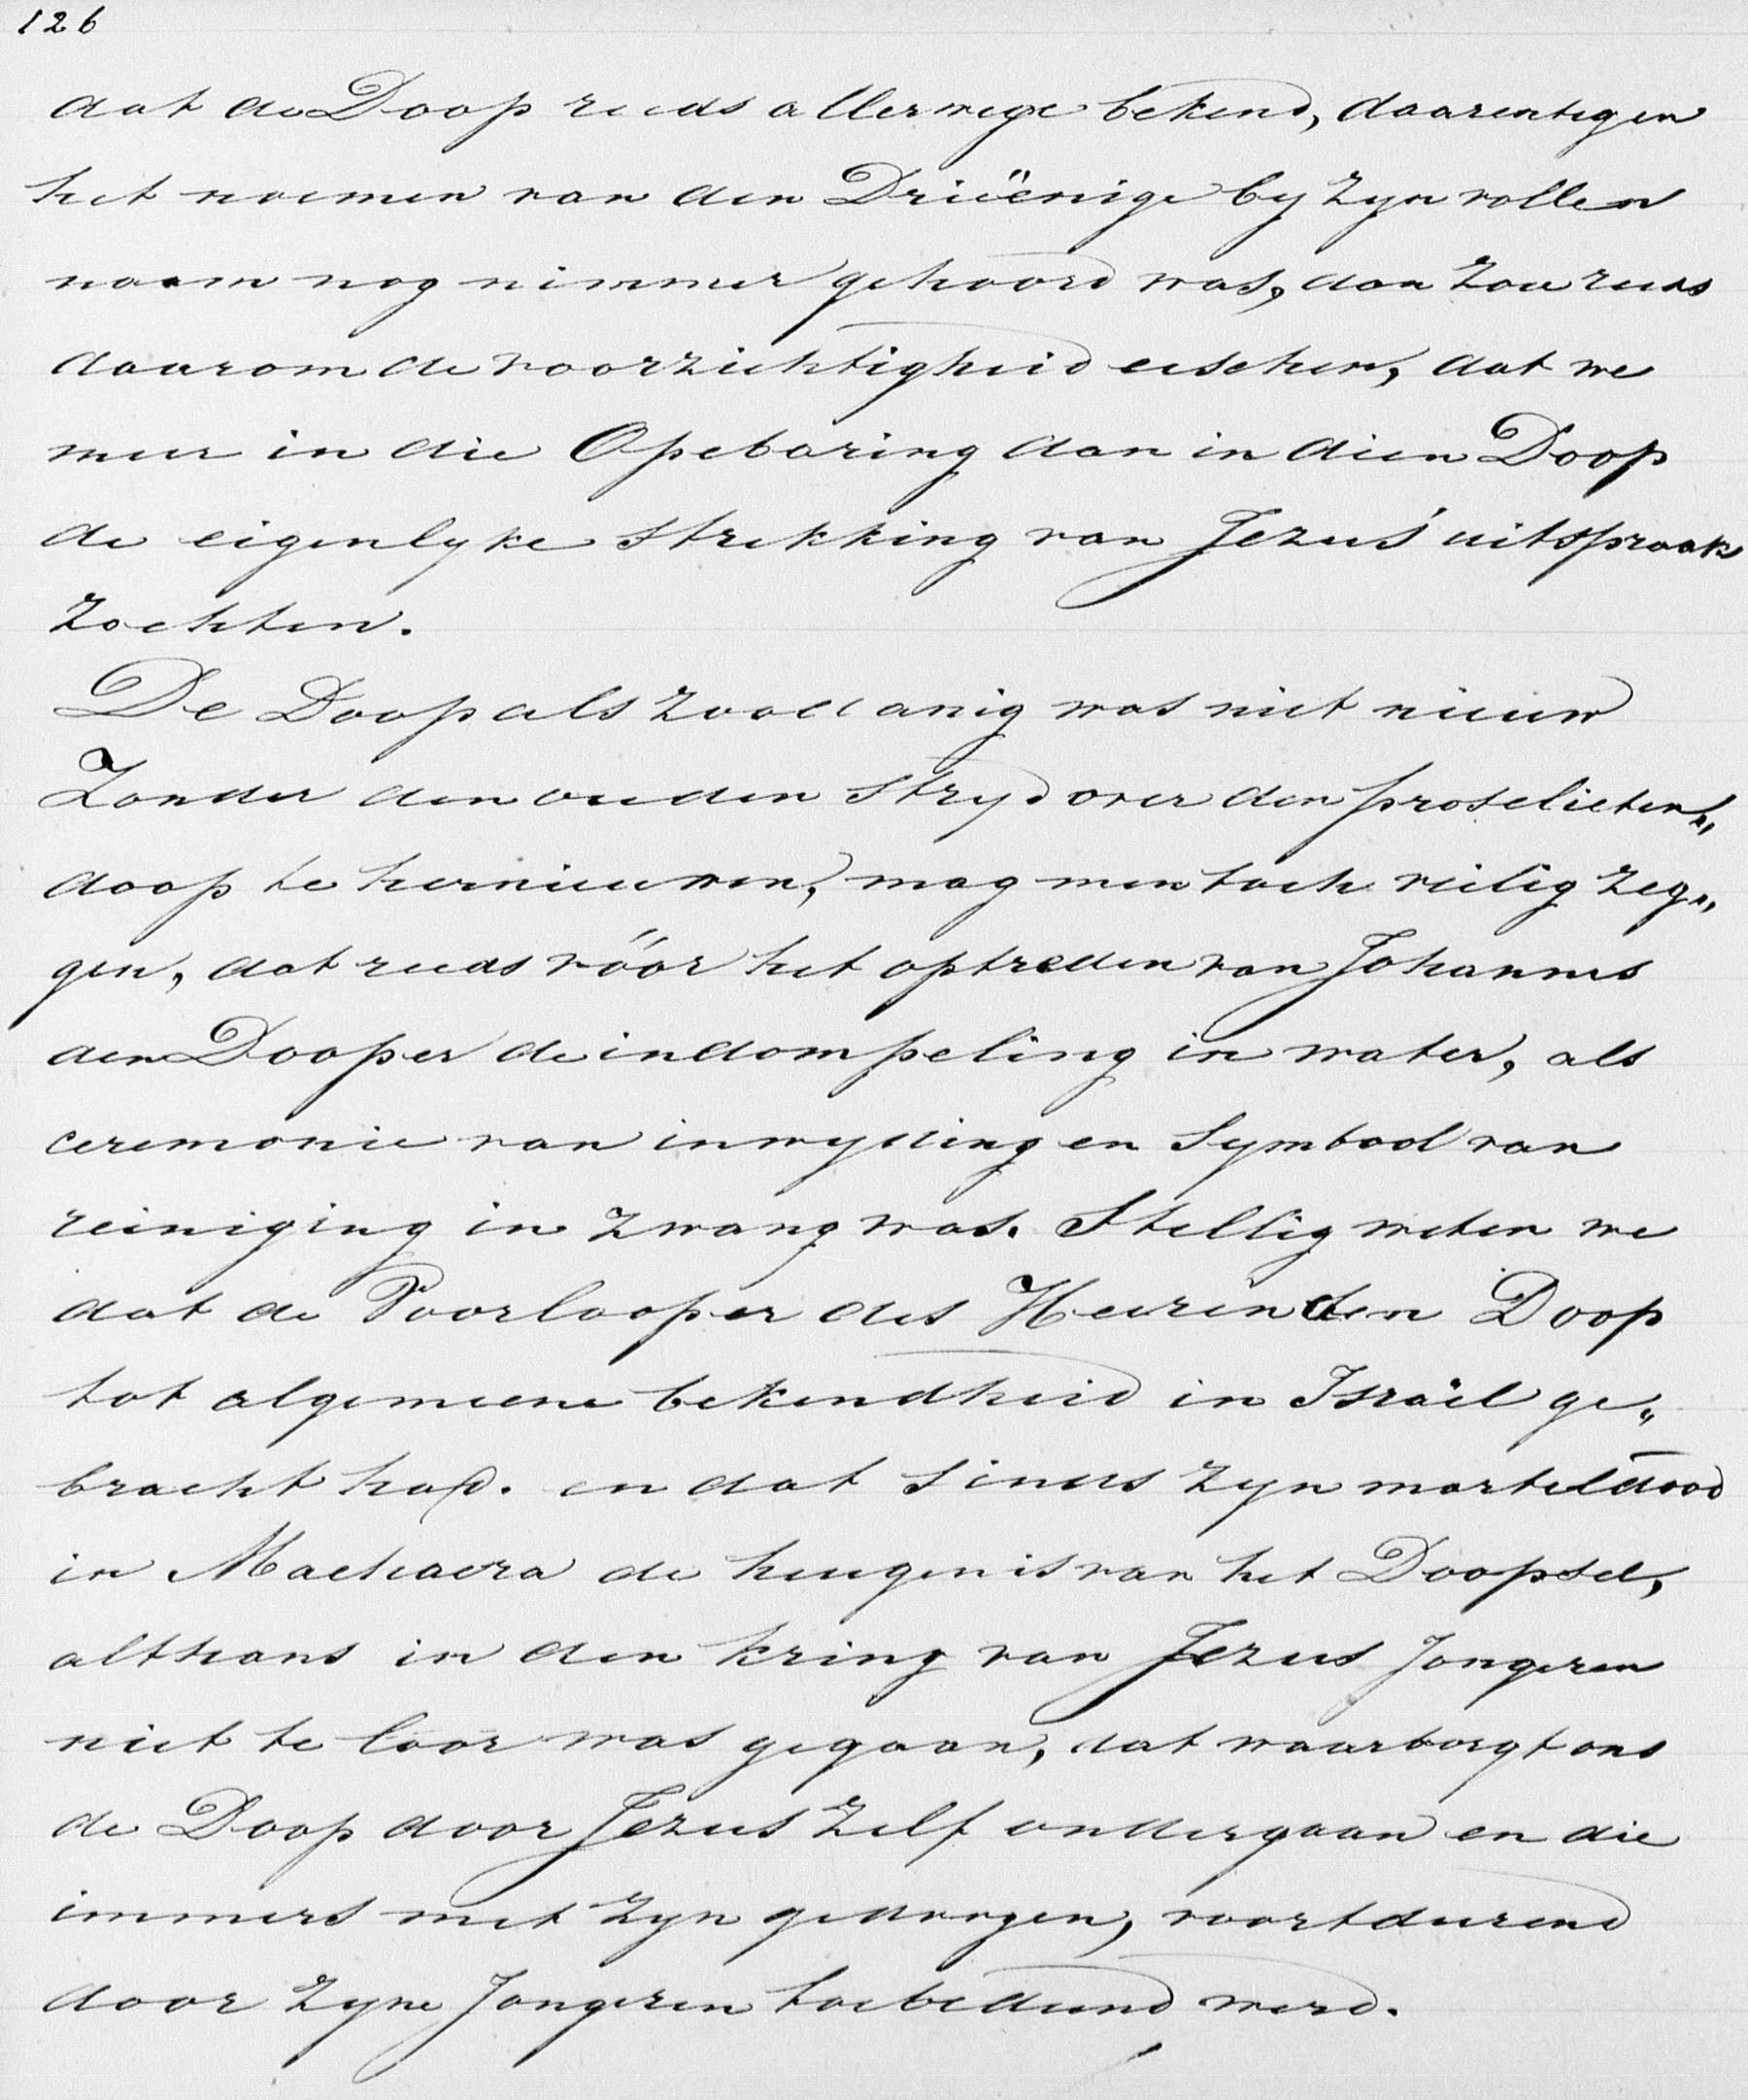 126
dat de Doop reeds allerwege bekend, daarentegen
het noemen van den Drieënige by zyn vollen
naam nog nimmer gehoord was, dan zou reeds
daarom de voorzichtigheid eischen, dat we
meer in die Opebaring dan in dien Doop
de eigenlyke strekking van Jezus' uitspraak
zochten.
De Doop als zoodanig was niet nieuw
Zonder den ouden stryd over den proselieten„
doop te hernieuwen, mag men toch veilig zeg„
gen, dat reeds vóór het optreden van Johannes
den Dooper de indompeling in water, als
ceremonie van inwyding en symbool van
reiniging in zwang was. Stellig weten we
dat de Voorlooper des Heeren den Doop
tot algemeene bekendheid in Israël ge„
bracht had. en dat sinds zyn marteldood
in Machaera de heugenis van het Doopsel,
althans in den kring van Jezus Jongeren
niet te loor was gegaan, dat waarborgt ons
de Doop door Jezus zelf ondergaan en die
immers met zyn gedoogen, voortdurend
door zyne Jongeren toebediend werd.